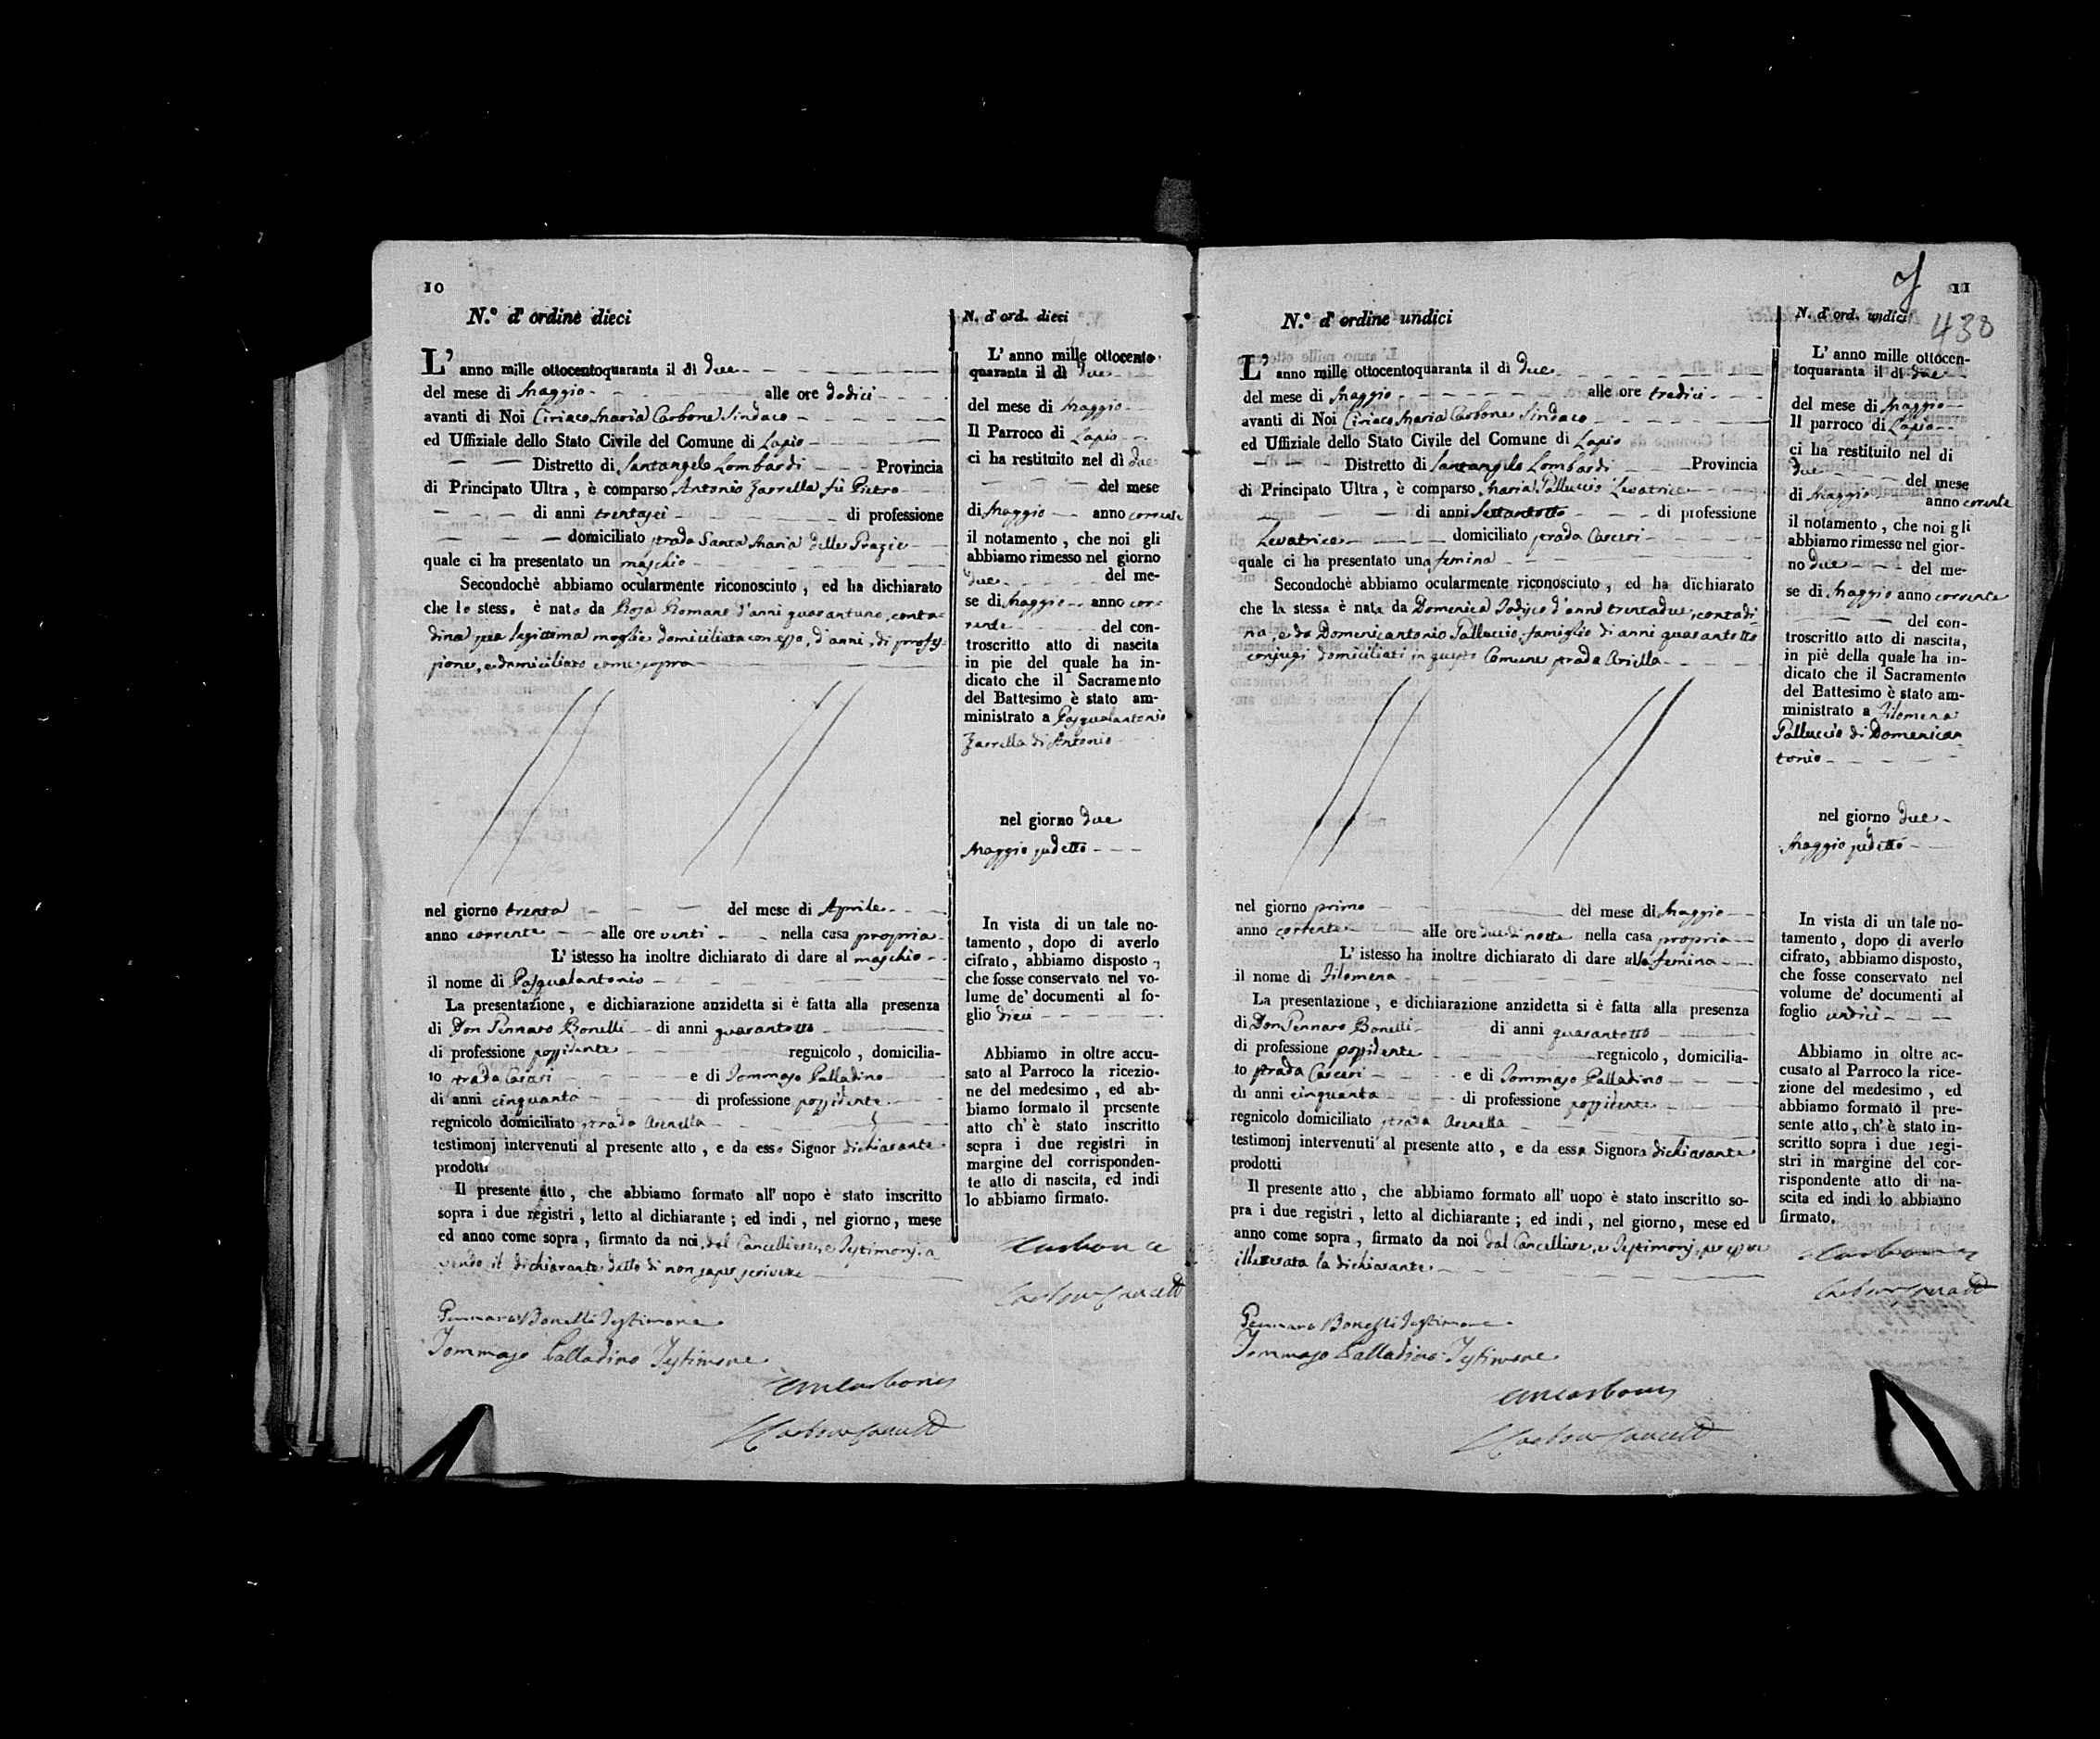 10
N.° d' ordine dieci
L' anno mille ottocentoquaranta il dì due
del mese di Maggio alle ore dodici
avanti di Noi Ciriaco Maria Carbone Sindaco
ed Uffiziale dello Stato Civile del Comune di Lapio
Distretto di Santangelo Lombardi Provincia
di Principato Ultra, è comparso Antonio Zarrella fù Pietro
di anni trentasei di professione
domiciliato strada Santa Maria delle Grazie
quale ci ha presentato un maschio
Secondochè abbiamo ocularmente riconosciuto, ed ha dichiarato
che lo stesso è nato da Rosa Romano d'anni quarantuno, conta-
dina sua legittima moglie domiciliata con esso, d'anni, di profes-
sione, e domiciliato come sopra
nel giorno trenta del mese di Aprile
anno corrente alle ore venti nella casa propria
L' istesso ha inoltre dichiarato di dare al maschio
il nome di Pasqualantonio
La presentazione, e dichiarazione anzidetta si è fatta alla presenza
di Don Gennaro Bonelli di anni quarantotto
di professione possidente regnicolo, domicilia-
to strada Casari e di Tommaso Palladino
di anni cinquanta di professione possidente
regnicolo domiciliato strada
testimonj intervenuti al presente atto, e da esso Signor dichiarante
prodotti
Il presente atto, che abbiamo formato all' uopo è stato inscritto
sopra i due registri, letto al dichiarante; ed indi, nel giorno, mese
ed anno come sopra, firmato da noi dal Cancelliere, e Testimonj, a
vendo il dichiarante detto di non saper scrivere
Gennaro Bonelli Testimone
Tommaso Palladino Testimone
N. d' ord. dieci
L' anno mille ottocento-
quaranta il dì due
del mese di Maggio
Il Parroco di Lapio
ci ha restituito nel dì due
del mese
di Maggio anno corrente
il notamento, che noi gli
abbiamo rimesso nel giorno
due del me-
se di Maggio anno cor-
rente del con-
troscritto atto di nascita
in pie del quale ha in-
dicato che il Sacramento
del Battesimo è stato am-
ministrato a Pasqualantonio
Zarrella di Antonio
nel giorno due
Maggio sudetto
In vista di un tale no-
tamento, dopo di averlo
cifrato, abbiamo disposto,
che fosse conservato nel vo-
lume de' documenti al fo-
glio dieci
Abbiamo in oltre accu-
sato al Parroco la ricezio-
ne del medesimo, ed ab-
biamo formato il presente
atto ch' è stato inscritto
sopra i due registri in
margine del corrisponden-
te atto di nascita, ed indi
lo abbiamo firmato.
Carbone
11
430
N.° d' ordine undici
L' anno mille ottocentoquaranta il dì due
del mese di Maggio alle ore tredici
avanti di Noi Ciriaco Maria Carbone Sindaco
ed Uffiziale dello Stato Civile del Comune di Lapio
Distretto di Santangelo Lombardi Provincia
di Principato Ultra, è comparso Maria Palluccio Levatrice
di anni Settantotto di professione
Levatrice domiciliato strada Casari
quale ci ha presentato una femina
Secondochè abbiamo ocularmente riconosciuto, ed ha dichiarato
che la stessa è nata da Domenica Iodice d'anni trentadue, contadi-
na, e da Domenicantonio Palluccio, famiglio di anni quarantotto
conjugi domiciliati in questo Comune strada
nel giorno primo del mese di Maggio
anno corrente alle ore due di notte nella casa propria
L' istesso ha inoltre dichiarato di dare alla femina
il nome di Filomena
La presentazione, e dichiarazione anzidetta si è fatta alla presenza
di Don Gennaro Bonelli di anni quarantotto
di professione possidente regnicolo, domicilia-
to strada Casari e di Tommaso Palladino
di anni cinquanta di professione possidente
regnicolo domiciliato strada
testimonj intervenuti al presente atto, e da essa Signora dichiarante
prodotti
Il presente atto, che abbiamo formato all' uopo è stato inscritto so-
pra i due registri, letto al dichiarante; ed indi, nel giorno, mese ed
anno come sopra, firmato da noi dal Cancelliere, e Testimonj, per essere
illiterata la dichiarante.
Gennaro Bonelli Testimone
Tommaso Palladino Testimone
N. d' ord. undici
L' anno mille ottocen-
toquaranta il dì due
del mese di Maggio
Il parroco di Lapio
ci ha restituito nel di
due del mese
di Maggio anno corrente
il notamento, che noi gli
abbiamo rimesso nel gior-
no due del me-
se di Maggio anno corrente
del con-
troscritto atto di nascita,
in piè della quale ha in-
dicato che il Sacramento
del Battesimo è stato am-
ministrato a Filomena
Palluccio di Domenican
tonio
nel giorno due
Maggio sudetto
In vista di un tale no-
tamento, dopo di averlo
cifrato, abbiamo disposto,
che fosse conservato nel
volume de' documenti al
foglio undici
Abbiamo in oltre ac-
cusato al Parroco la rice-
zione del medesimo, ed
abbiamo formato il pre-
sente atto, ch' è stato in-
scritto sopra i due regi-
stri in margine del cor-
rispondente atto di na-
scita ed indi lo abbiamo
firmato.
Carbone